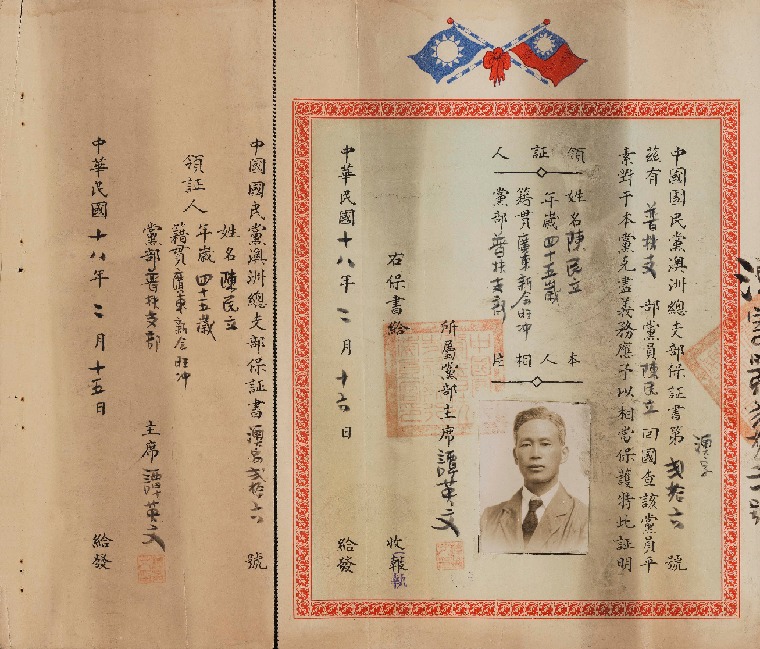 中國國民黨澳洲總支部保証書第 弍拾六 號
茲有 普扶支 部黨員陳民立 回國查該黨員平
素對于本黨克盡義務應予以相當保護特此証明
領証人
姓名陳民立
年歲四十五歲
籍貫廣東新會旺冲
黨部普扶支部
本人相片
所屬黨部主席譚英文
右保書給
收執
中華民國十八年二月十六日
給發
中國國民黨澳洲總支部保証書 弍拾六 號
領証人
姓名陳民立
年歲四十五歲
籍貫廣東新會旺冲
黨部普扶支部
主席譚英文
中華民國十八年二月十五日
給發